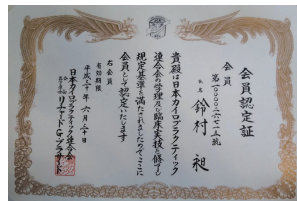 会員認定証
会員
氏名 鈴村 昶
貴殿は日本カイロプラクティック
連合会の学理及び臨床実技を修了し
規定基準を満たされましたのでここに
会員として認定いたします
右会員
有効期限
平成三十年 六月三十日
日本カイロプラクティック連合会